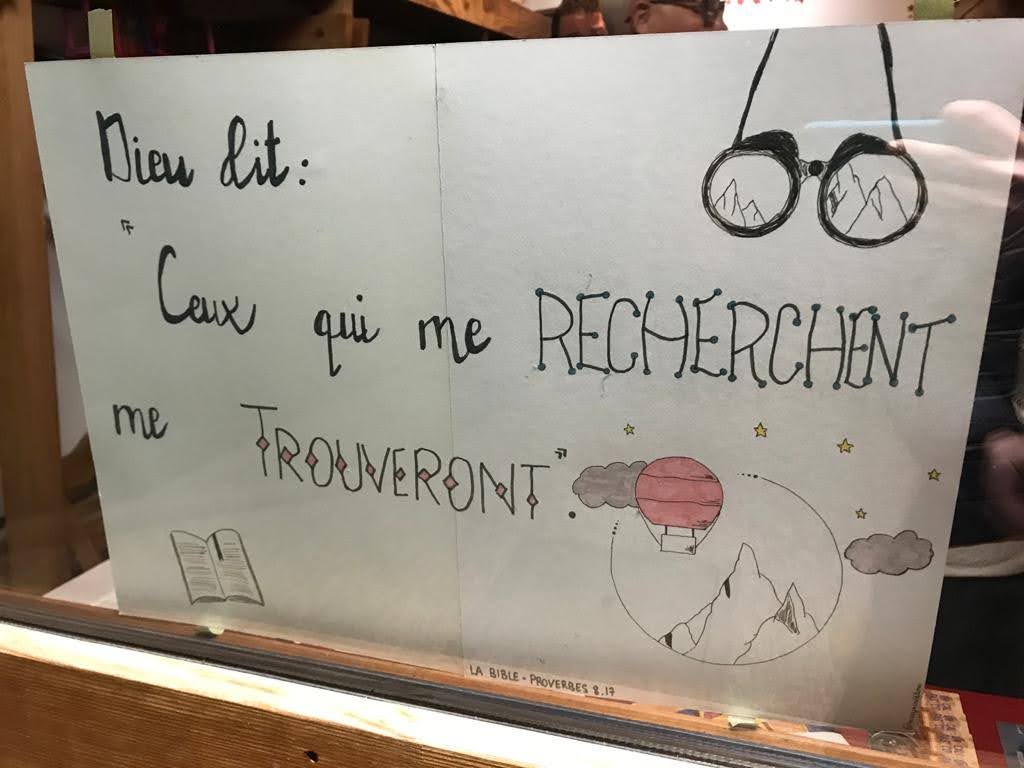 Dieu dit:
"Ceux qui me RECHERCHENT
me TROUVERONT".
LA BIBLE - PROVERBES 8.17